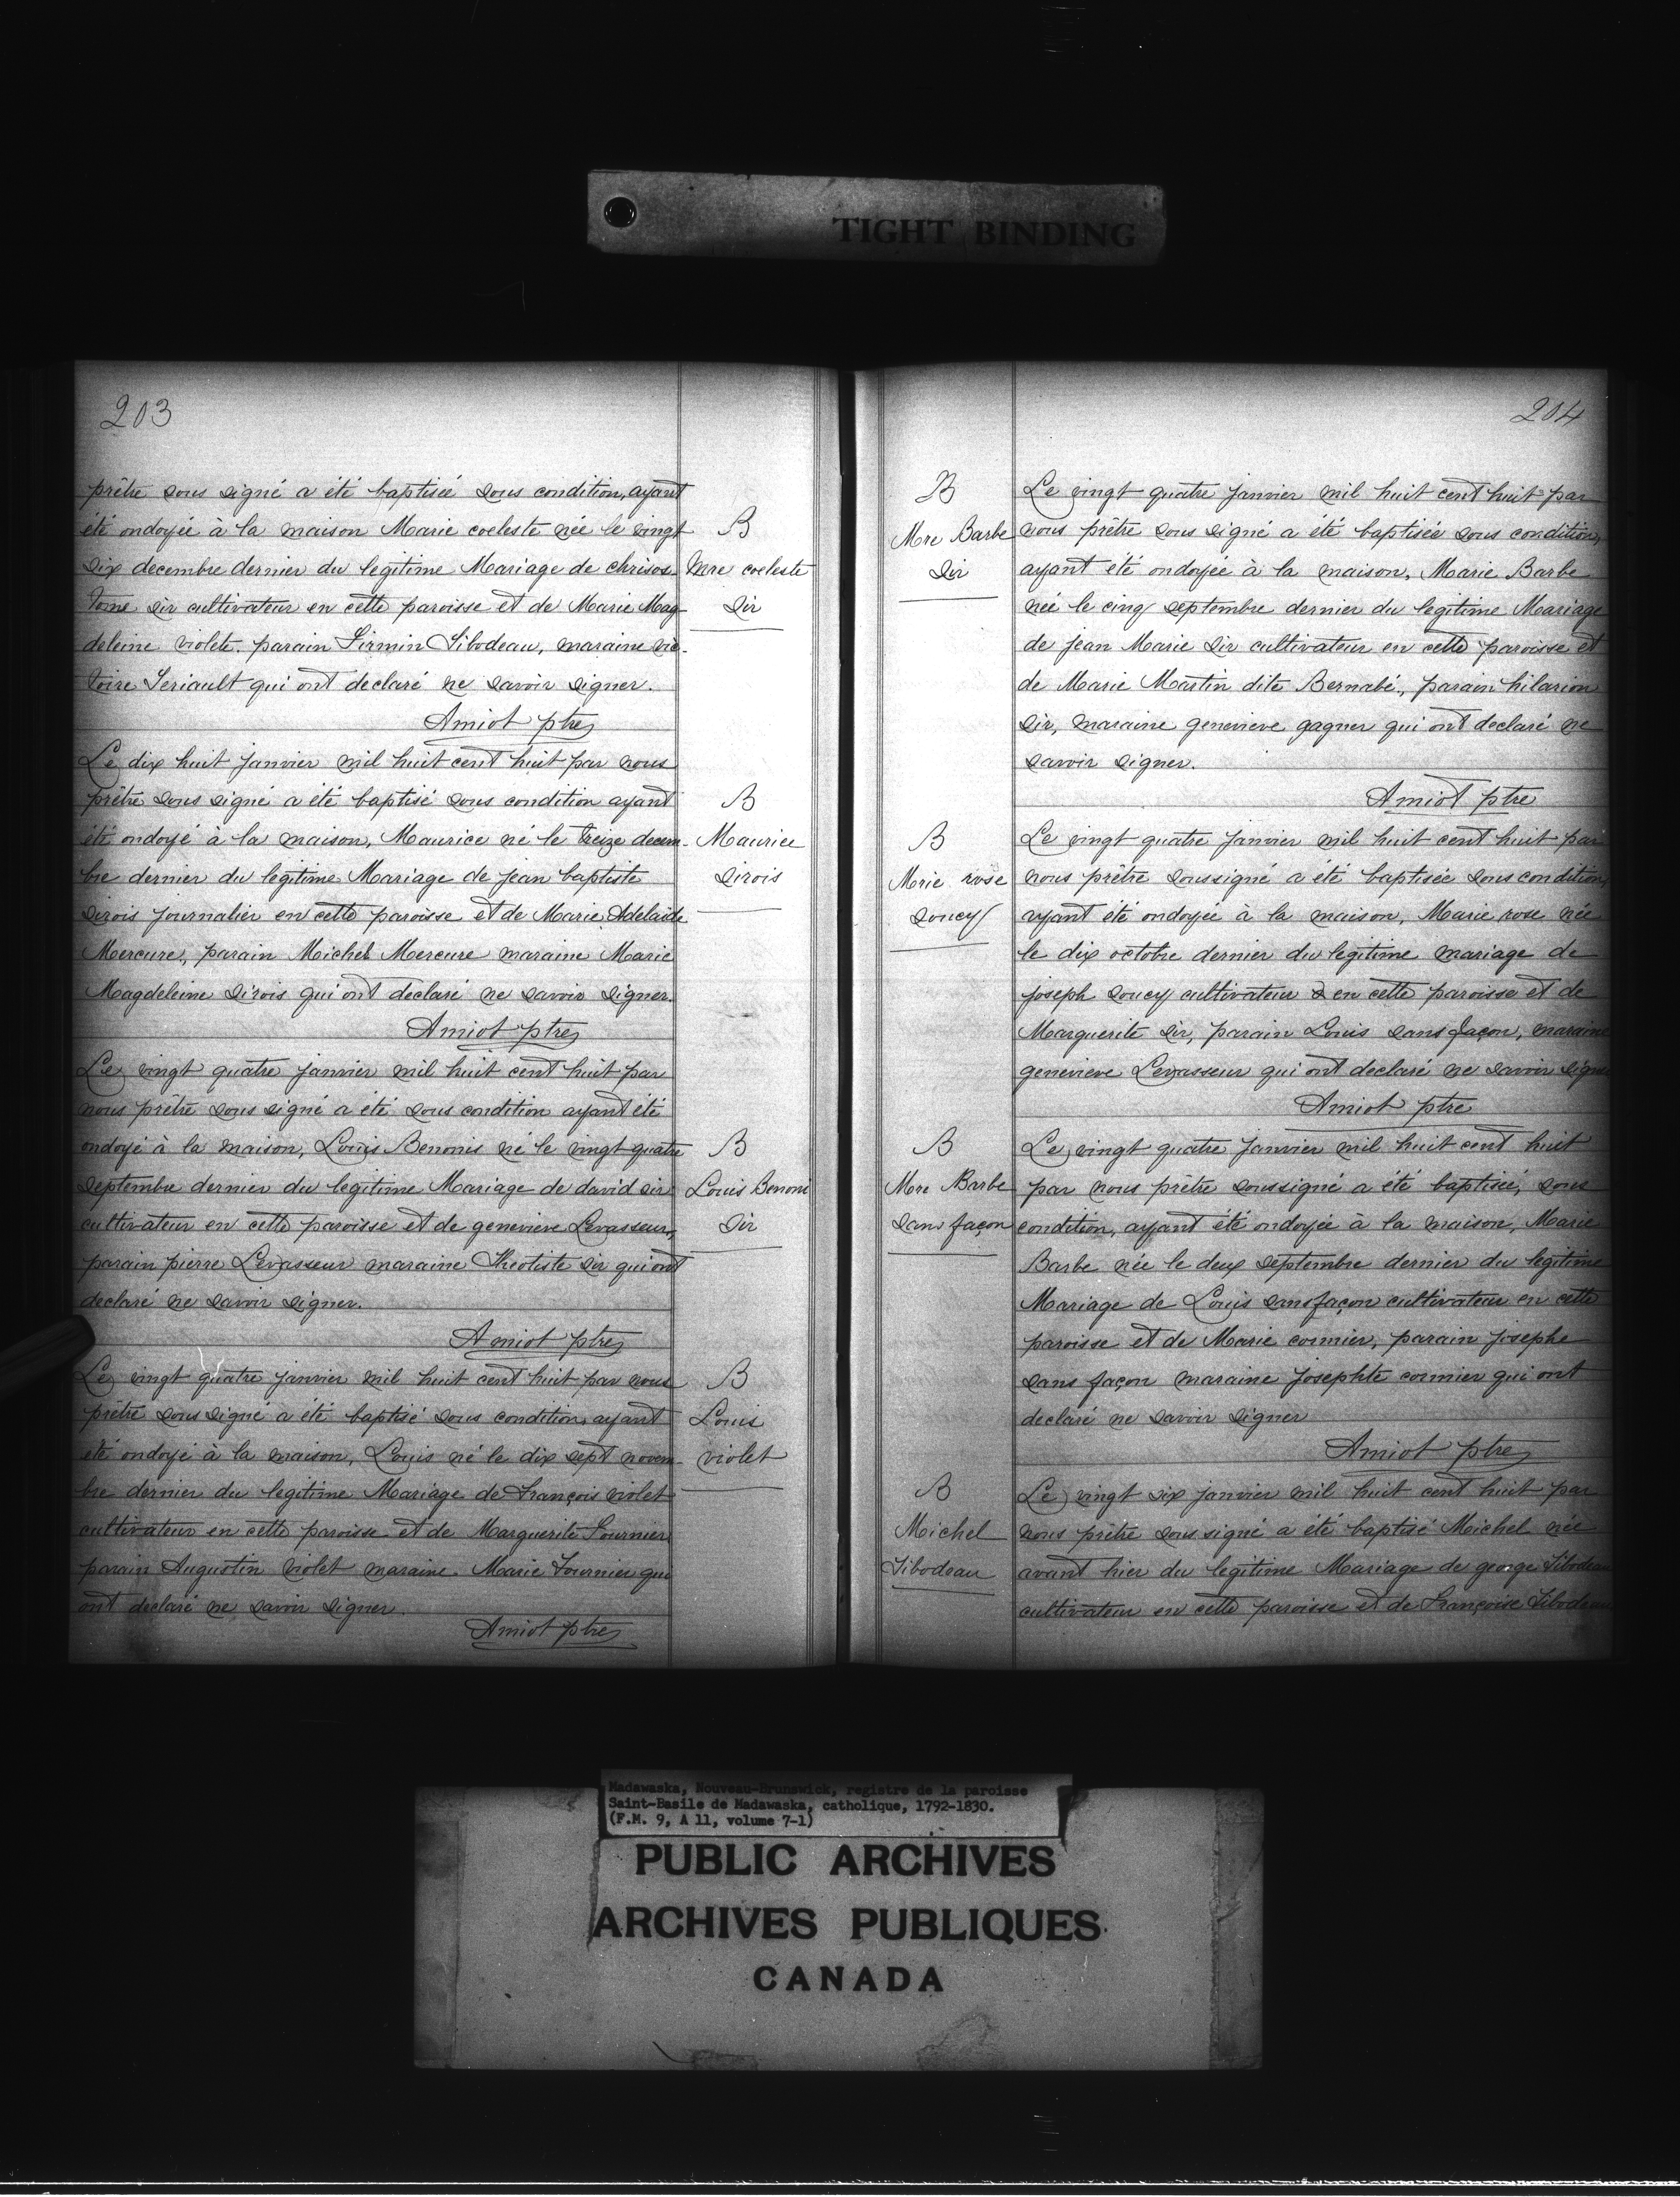 TIGHT BINDING
203
prêtre sous signé a été baptisée sous condition, ayant
été ondoyée à la maison Marie coeleste née le vingt
six decembre dernier du legitime Mariage de chrisos-
tome sir cultivateur en cette paroisse et de Marie Mag-
deleine violete. parain Firmin Tibodeau, maraine vic-
toire Teriault qui ont declaré ne savoir signer.
Amiot ptre
B
Mre coeleste
Sir
Le dix huit janvier mil huit cent huit par nous
prêtre sous signé a été baptisé sous condition ayant
été ondoyé à la maison, Maurice né le treize decem-
bre dernier du legitime Mariage de jean baptiste
sirois journalier en cette paroisse et de Marie Adelaide
Mercure, parain Michel Mercure maraine Marie
Magdeleine sirois qui ont declaré ne savoir signer.
Amiot ptre
B
Maurice
Sirois
Le vingt quatre janvier mil huit cent huit par
nous prêtre sous signé a été sous condition ayant été
ondoyé à la maison, Louis Benonis né le vingt quatre
septembre dernier du legitime Mariage de david sir
cultivateur en cette paroisse et de genevieve Levasseur,
parain pierre Levasseur maraine Theotiste sir qui ont
declaré ne savoir signer.
Amiot ptre
B
Louis Benoni
Sir
Le vingt quatre janvier mil huit cent huit par nous
prêtre sous signé a été baptisé sous condition, ayant
été ondoyé à la maison, Louis né le dix sept novem-
bre dernier du legitime Mariage de François violet
cultivateur en cette paroisse et de Marguerite Fournier
parain Augustin violet maraine Marie Fournier qui
ont declaré ne savoir signer.
Amiot ptre
B
Louis
violet
204
B
Mre Barbe
Sir
Le vingt quatre janvier mil huit cent huit par
nous prêtre sous signé a été baptisée sous condition,
ayant été ondoyée à la maison, Marie Barbe
née le cinq septembre dernier du legitime Mariage
de jean Marie Sir cultivateur en cette paroisse et
de Marie Martin dite Bernabé, parain hilarion
Sir, maraine genevieve gagner qui ont declaré ne
savoir signer.
Amiot ptre
B
Marie rose
Soucy
Le vingt quatre janvier mil huit cent huit par
nous prêtre soussigné a été baptisée sous condition,
ayant été ondoyée à la maison, Marie rose née
le dix octobre dernier du legitime mariage de
joseph soucy cultivateur en cette paroisse et de
Marguerite Sir, parain Louis sans façon, maraine
genevieve Levasseur qui ont declaré ne savoir signer
Amiot ptre
B
Mre Barbe
Sans façon
Le vingt quatre janvier mil huit cent huit
par nous prêtre soussigné a été baptisée, sous
condition, ayant été ondoyée à la maison, Marie
Barbe née le deux septembre dernier du legitime
Mariage de Louis sansfaçon cultivateur en cette
paroisse et de Marie cormier, parain josephe
sans façon maraine josephte cormier qui ont
declaré ne savoir signer
Amiot ptre
B
Michel
Tibodeau
Le vingt six janvier mil huit cent huit par
nous prêtre sous signé a été baptisé Michel née
avant hier du legitime Mariage de george Tibodeau
cultivateur en cette paroisse et de Françoise Tibodeau
Madawaska, Nouveau-Brunswick, registre de la paroisse
Saint-Basile de Madawaska, catholique, 1792-1830.
(F.M. 9, A 11, volume 7-1)
PUBLIC ARCHIVES
ARCHIVES PUBLIQUES
CANADA